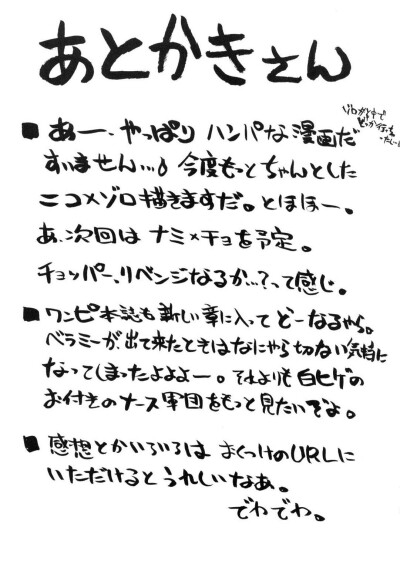 あとかきさん
ゾロが途中で
■ あー、やっぱり ハンパな漫画だ
すいません…。今度もっとちゃんとした
ニコ×ゾロ描きますだ。とほほー。
あ、次回は ナミ×チョを予定。
チョッパー、リベンジなるか…?って感じ。
■ ワンピ本誌も新しい章に入って どーなるやら。
ベラミーが出て来たときはなにやら切ない気持に
なってしまったよよよー。それよりも白ヒゲの
お付きのナース軍団をもっと見たいぞよ。
■ 感想とかいろいろは おくつけのURLに
いただけるとうれしいなあ。
でわでわ。